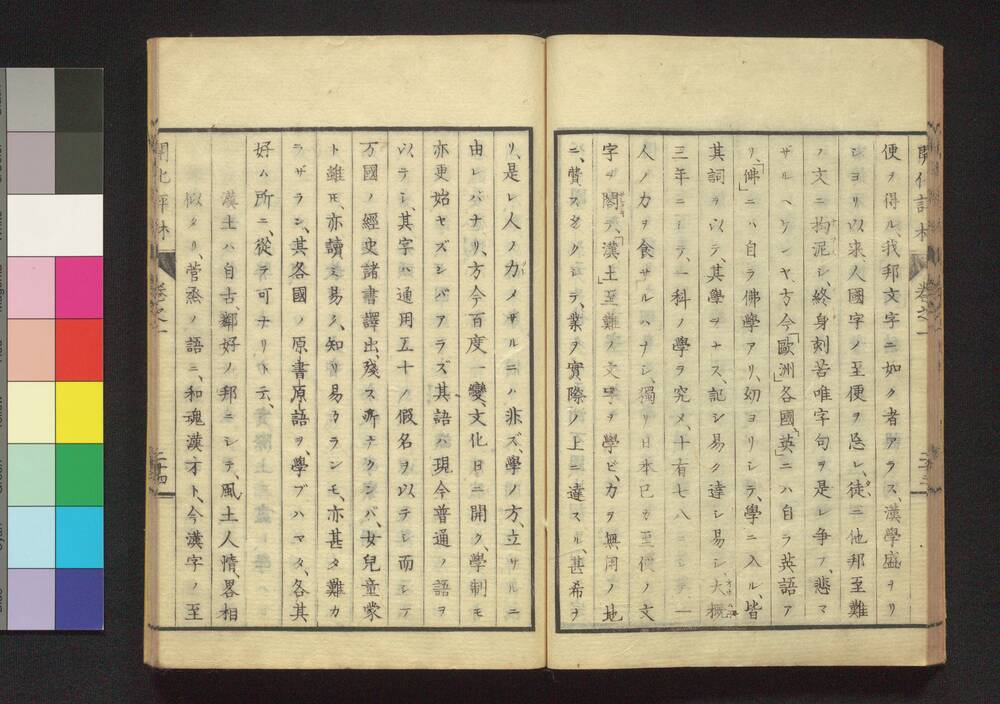 便ヲ得ル、我邦文字ニ如ク者アラズ、漢學盛ヲリ
シヨリ以来、人國字ノ至便ヲ忘レ、徒ニ他邦至難
ノ文ニ拘泥シ、終身刻苦唯字句ヲ是レ争フ、悲マ
ザルヘケンヤ、方今「歐洲」各國、「英」ニハ自ラ英語ア
リ、「佛」ニハ自ラ佛學アリ、幼ヨリシテ、學ニ入ル、皆
其詞ヲ以テ、其學ヲナス、記シ易ク達シ易シ、大概
三年ニシテ、一科ノ學ヲ究メ、十有七八
人ノ力ヲ食サルハナシ、獨リ日本已カ至便ノ文
字ヲ閣テ、「漢土」至難ノ文字ヲ學ビ、力ヲ無用ノ地
ニ、費スタクシテ、業ヲ實際ノ上ニ達スル、甚希ヲ
リ、是レ人ノ力メサルニハ非ズ、學ノ方、立サルニ
由レバナリ、方今百度一變、文化日ニ開ク、學制モ
亦更始セズンバアラズ、其語ハ現今普通ノ語ヲ
以テシ、其字ハ通用五十ノ假名ヲ以テシ、而シテ
万國ノ經史諸書譯出、殘ス所ナクンバ、女兒童蒙
ト雖モ、亦讀ミ易ク、知リ易カランモ、亦甚タ難カ
ラザラン、其各國ノ原書原語ヲ、學ブハマタ、各其
好ム所ニ、從テ可ナリト云、
漢土ハ自古、鄰好ノ邦ニシテ、風土人情、畧相
似タリ、菅烝ノ語ニ、和魂漢才ト、今漢字ノ至
開化評林
巻之一
二十四